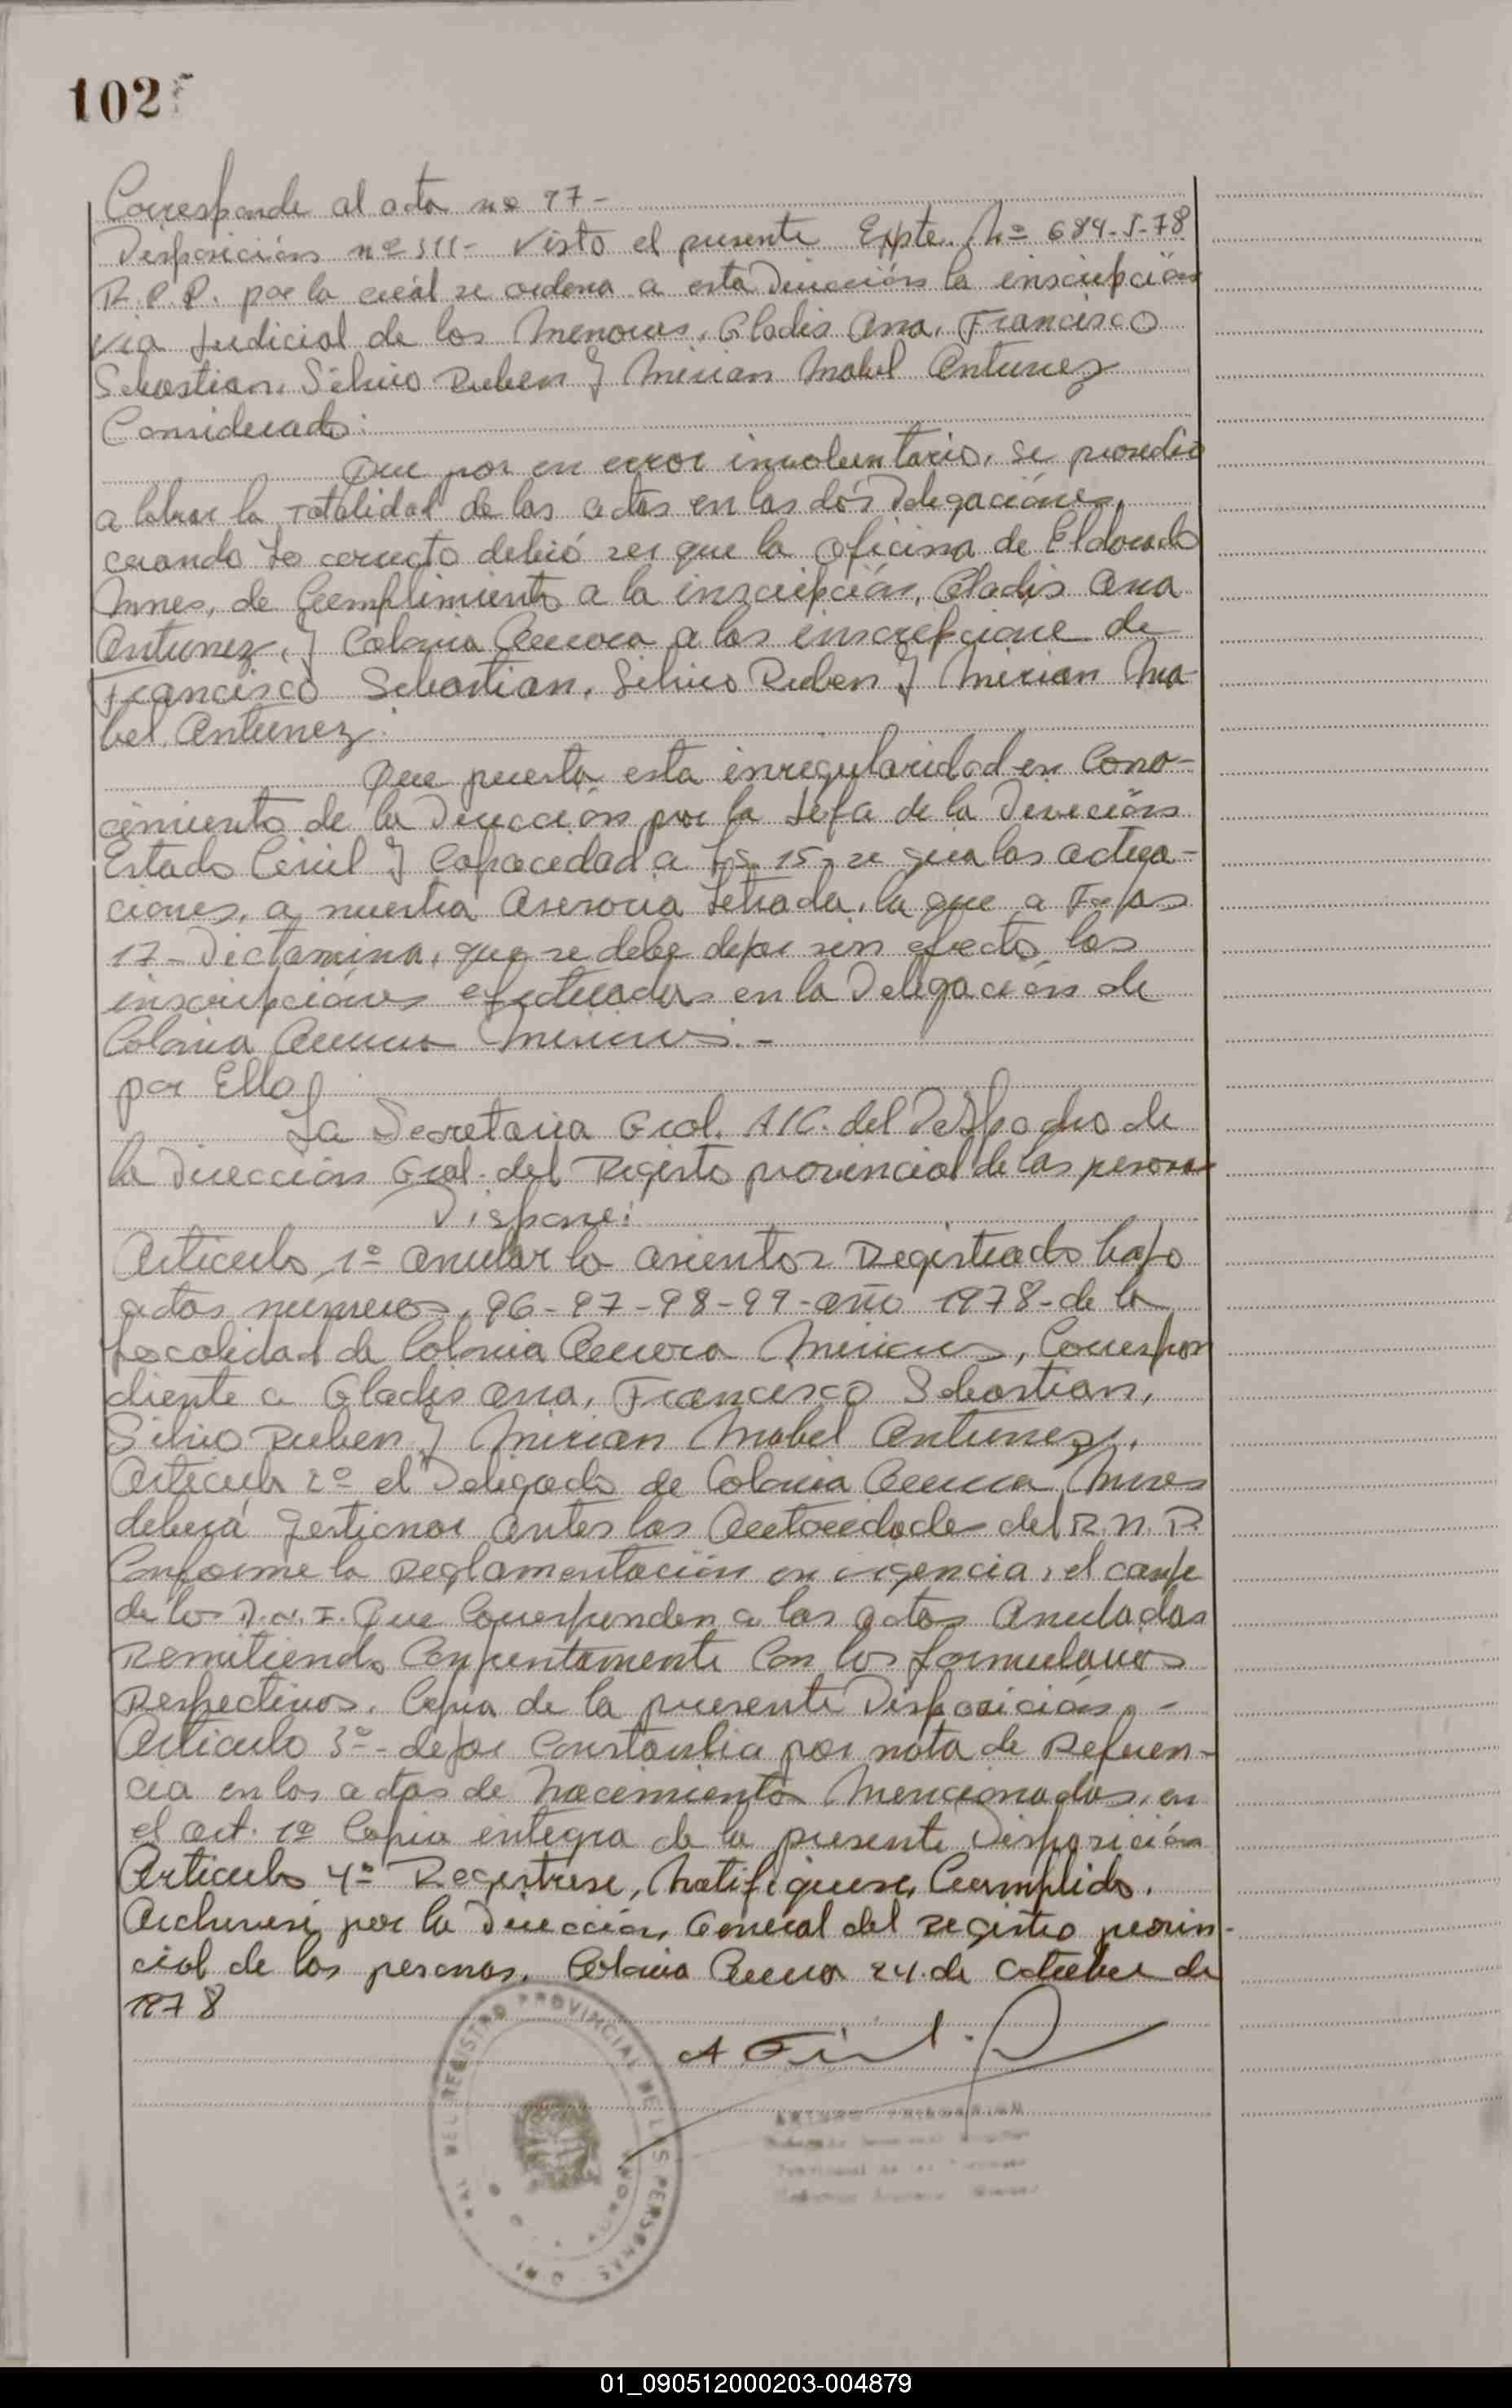 102
Corresponde al acta nº 97-
Disposición nº 311- Visto el presente Expte. Nº 684-S-78
R.P.P. por la cuál se ordena a esta Dirección la inscripción
via Judicial de los Menores, Gladis Ana, Francisco
Sebastian, Silvio Ruben y Mirian Mabel Antunez
Considerado:
Que por un error involuntario, se procedio
a labrar la totalidad de las actas en las dos Delegaciónes,
cuando lo correcto debió ser que la oficina de Eldorado
Mnes, de Cumplimiento a la inscripción, Gladis Ana
Antunez, y Colonia Aurora a las inscripcione de
Francisco Sebastian, Silvio Ruben y Mirian Ma-
bel Antunez.
Que puesta esta inrigularidad en Cono-
cimiento de la Dirección por la Jefa de la Dirección
Estado Civil y Capacedad a Fs. 15, se gira las actua-
ciones, a nuestra Asesoria Letrada, la que a Fojas
17- Dictamina, que se debe dejar sin efecto, las
inscripciónes efectuadas en la Delegación de
Colonia Aurora Misiones.-
por Ello,
La Secretaria Gral. A/C. del Despacho de
la Dirección Gral. del Registo provincial de las personas
Dispone:
Articulo, 1º anular lo asientos Registrado bajo
actas numeros, 96-97-98-99- año 1978- de la
Localidad de Colonia Aurora Misiones, Correspon
diente a Gladis Ana, Francisco Sebastian,
Silvio Ruben y Mirian Mabel Antunez.
Articulo 2º el Delegado de Colonia Aurora Mnes
deberá gestionar antes las Autoridades del R.N.P.
Conforme la Reglamentación en vigencia, el canje
de los D.N.I. Que Corresponden a las actas Anuladas
Remitiendo Conjuntamente Con los formularios
Respectivos, Copia de la presente Disposición.-
Articulo 3º- dejar Constancia por nota de Referen-
cia en las actas de Nacimientos Mencionadas, en
el art. 1º Copia integra de la presente Disposición
Articulo 4º Registrese, Notifiquese, Cumplido,
Archivese por la Dirección General del Registro provin-
cial de las personas, Colonia Aurora 24 de Octubre de
1978
REGISTRO PROVINCIAL DE LAS PERSONAS